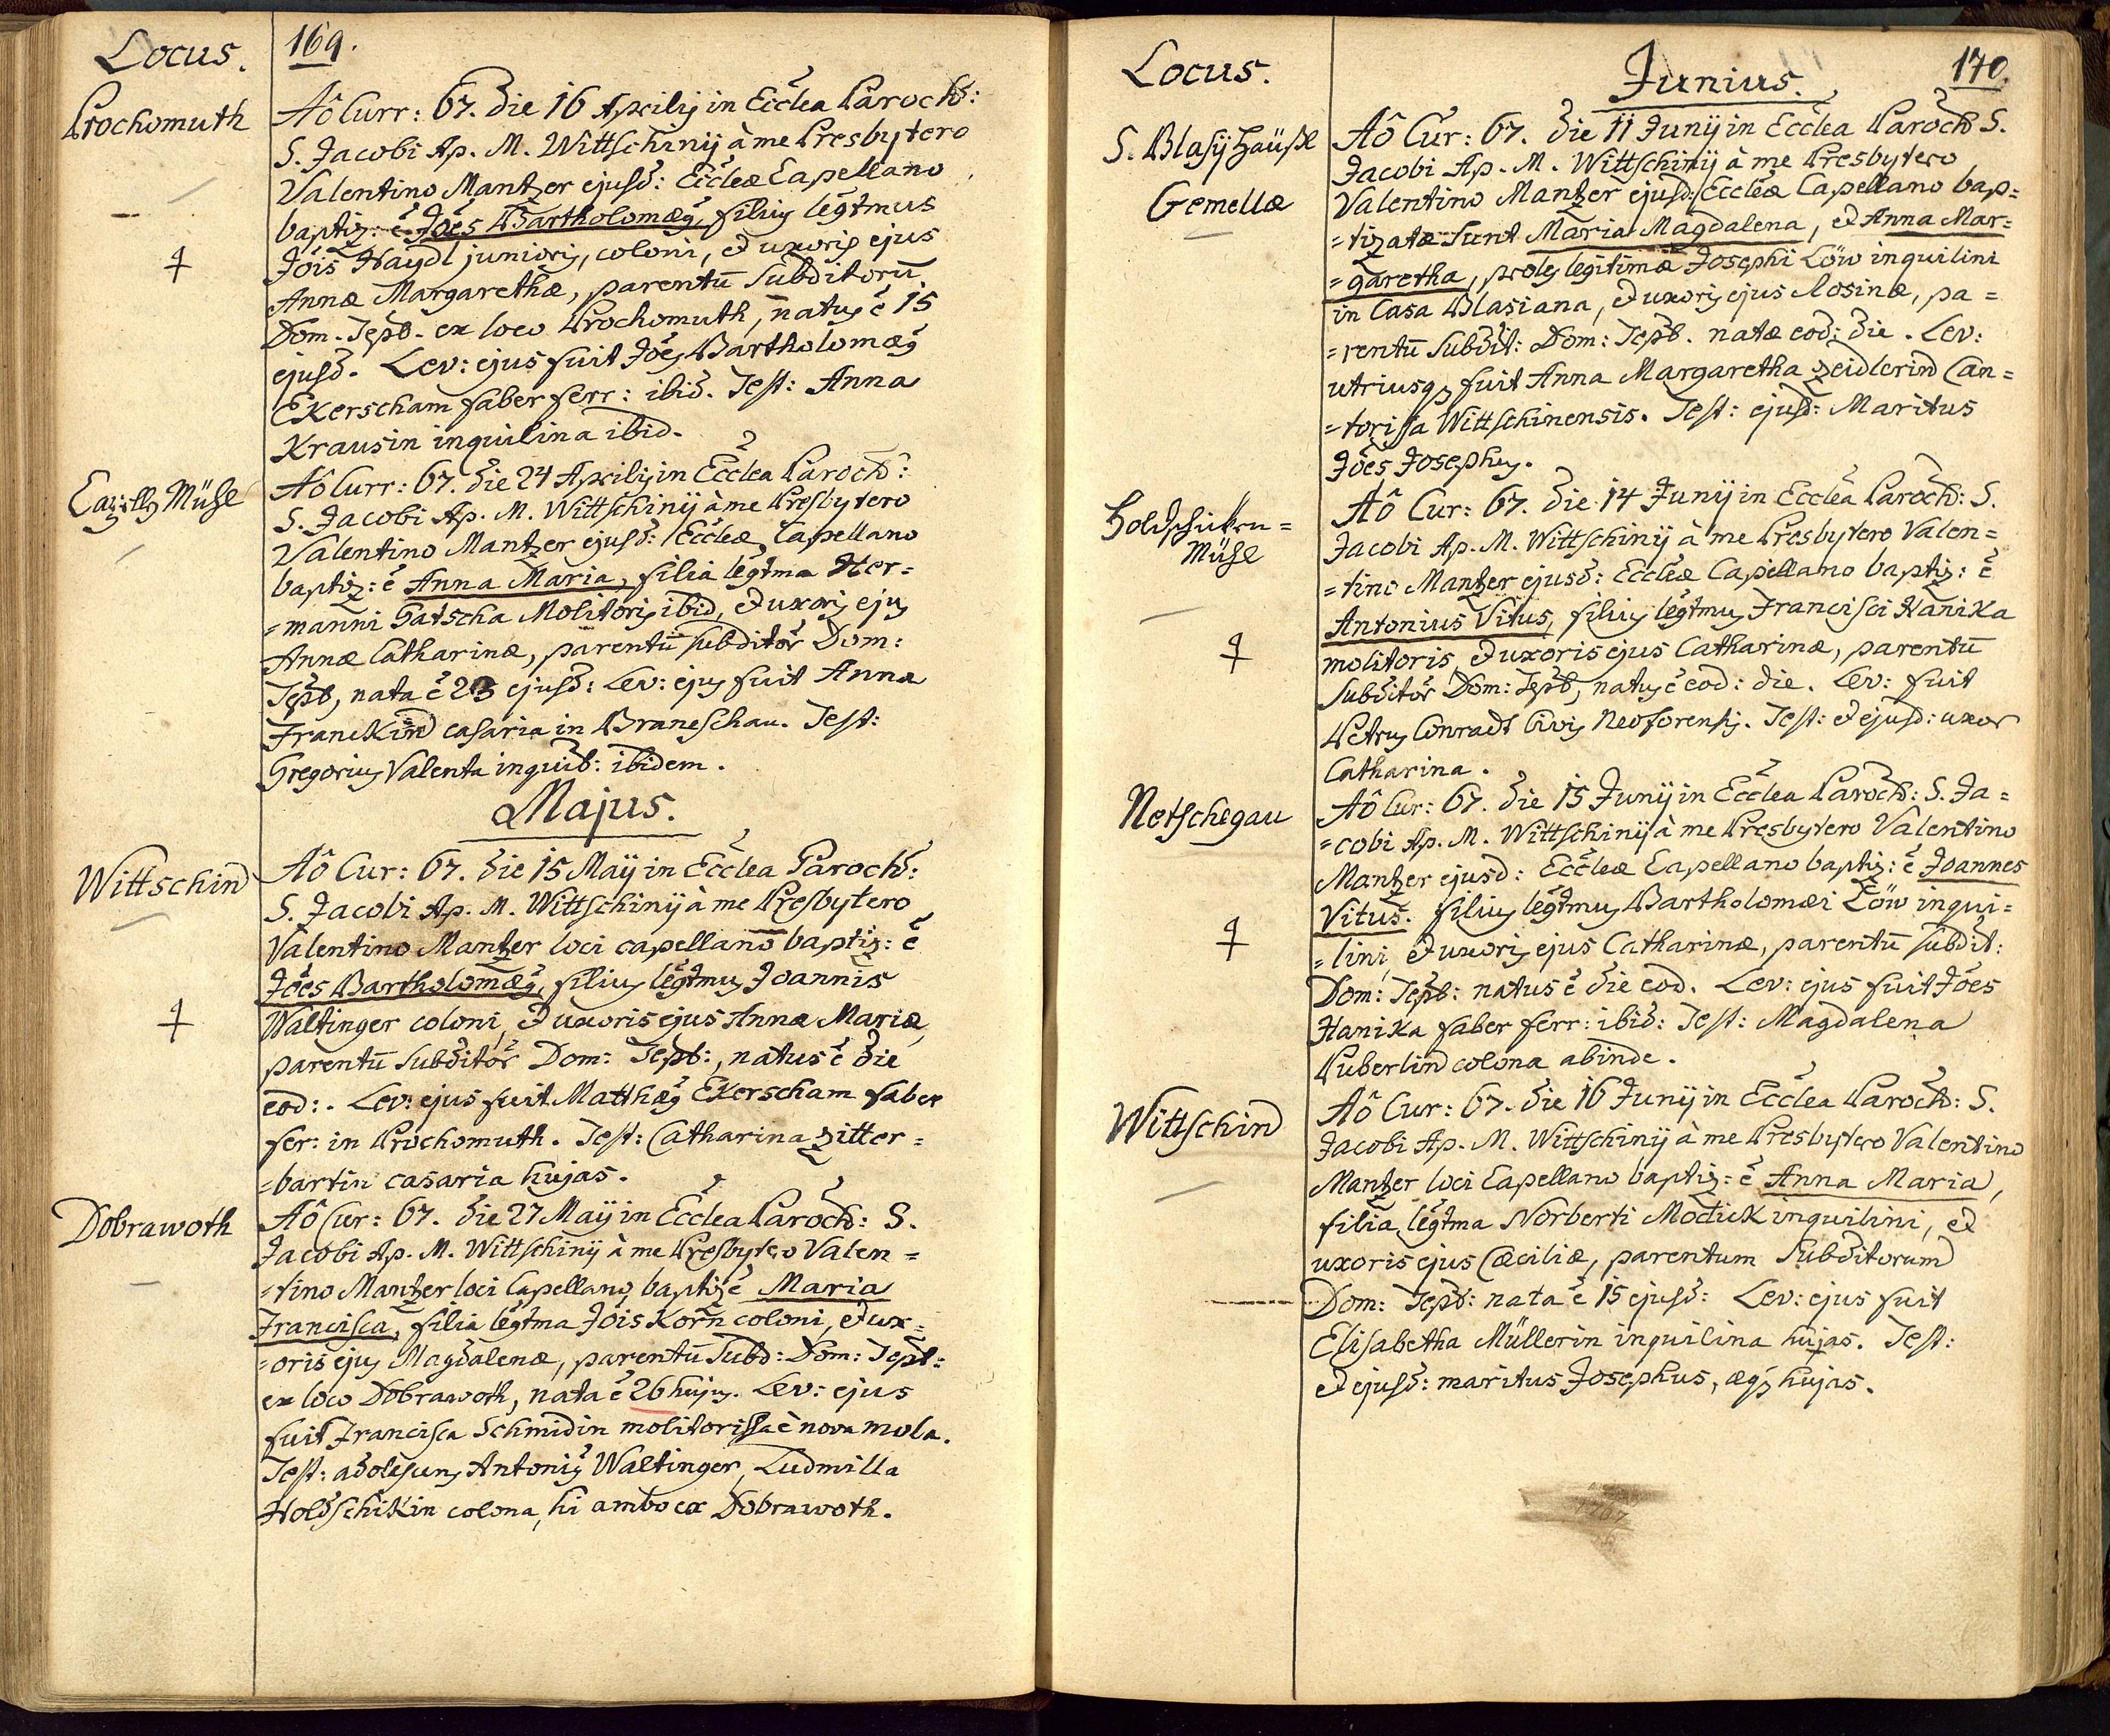 Locus. 169.
Prochomuth
Aô Curr: 67. die 16 Aprilis in Ecclea Paroch:
S. Jacobi Ap. M. Wittschinij à me Presbytero
Valentino Mantzer ejusd: Eccleæ Capellano
baptiz: ē Jões Bartholomæg, filius legtmus
Jõis Haydl junioris, coloni, et uxoris ejus
Annæ Margarethæ, parentū Subditorū
Dom. Tepb. ex loco Prochomuth, natus ē 15
ejusd. Lev: ejus fuit Jões Bartholomæg
Ekerscham faber ferr: ibid. Test: Anna
Krausin inquilina ibid.
Mühl
Aô Curr: 67. die 24 Aprilis in Ecclea Paroch:
S. Jacobi Ap. M. Wittschinij à me Presbytero
Valentino Mantzer ejusd: Eccleæ Capellano
baptiz: ē Anna Maria, filia legtma Her=
=manni Gatscha Molitoris ibid, et uxoris ejus
Annæ Catharinæ, parentū subditor Dom:
Tepb, nata ē 23 ejusd: Lev: ejus fuit Anna
Franckin casaria in Braneschau. Test:
Gregorius Valenta inquib: ibidem.
Majus.
Wittschin
Aô Cur: 67. die 15 Maij in Ecclea Paroch:
S. Jacobi Ap. M. Wittschinij à me Presbytero
Valentino Mantzer loci capellano baptiz: ē
Jões Bartholomæg, filius legtmus Joannis
Waltinger coloni, et uxoris ejus Annæ Mariæ,
parentū Subditor Dom: Tepb:, natus ē die
eod:. Lev: ejus fuit Matthæg Ekerscham faber
fer: in Prochomuth. Test: Catharina Zitter=
=bartin casaria hujas.
Dobrawoth
Aô Cur: 67. die 27 Maij in Ecclea Paroch: S.
Jacobi Ap. M. Wittschinij à me Presbytero Valen=
=tino Mantzer loci Capellano, baptiz ē Maria
Francisca, filia legtma Jõis Korn coloni, et ux=
=oris ejus Magdalenæ, parentū Subd: Dom: Tepb:
ex loco Dobrawoth, nata ē 26 hujus. Lev: ejus
fuit Francisca Schmidin molitorissa è nova mola.
Test: adolescens Antonig Waltinger, Ludmilla
Holdschikin colona, hi ambo ex Dobrawoth.
Locus. 170.
Junius.
S. Blasij Häußl
Gemellæ
Aô Cur: 67. die 11 Junij in Ecclea Paroch S.
Jacobi Ap. M. Wittschinij à me Presbytero
Valentino Mantzer ejusd: Eccleæ Capellano bap=
=tizatæ sunt Maria Magdalena, et Anna Mar=
=garetha, proles legitimæ Josephi Löw inquilini
in Casa Blasiana, et uxoris ejus Rosinæ, pa=
=rentū Subdit: Dom: Tepb. natæ eod: die. Lev:
utriusq fuit Anna Margaretha Zeidlerin Can=
=torissa Wittschinensis. Test: ejusd: Maritus
Jões Josephus.
Holdschicken=
Mühl
Aô Cur: 67. die 14 Junij in Ecclea Paroch: S.
Jacobi Ap. M. Wittschinij à me Presbytero Valen=
=tino Mantzer ejusd: Eccleæ Capellano baptiz: ē
Antonius Vitus, filius legtmus Francisci Hanika
molitoris, et uxoris ejus Catharinæ, parentū
subditor Dom: Tepb, natus ē eod: die. Lev: fuit
Petrus Conradt Civis Neoforensis. Test: et ejusd: uxor
Catharina.
Netschegau
Aô Cur: 67. die 15 Junij in Ecclea Paroch: S. Ja=
=cobi Ap. M. Wittschinij à me Presbytero Valentino
Mantzer ejusd: Eccleæ Capellano baptiz: ē Joannes
Vitus. filius legtmus Bartholomæi Löw inqui=
=lini, et uxoris ejus Catharinæ, parentū subdit:
Dom: Tepb: natus ē die eod. Lev: ejus fuit Jões
Hanika faber ferr: ibid: Test: Magdalena
Puberlin colona abinde.
Wittschin
Aô Cur: 67. die 16 Junij in Ecclea Paroch: S.
Jacobi Ap. M. Wittschinij à me Presbytero Valentino
Mantzer loci Capellano baptiz: ē Anna Maria,
filia legtma Norberti Modick inquilini, et
uxoris ejus Cæciliæ, parentum Subditorum
Dom: Tepb: nata ē 15 ejusd: Lev: ejus fuit
Elisabetha Müllerin inquilina hujas. Test:
et ejusd: maritus Josephus, æq hujas.